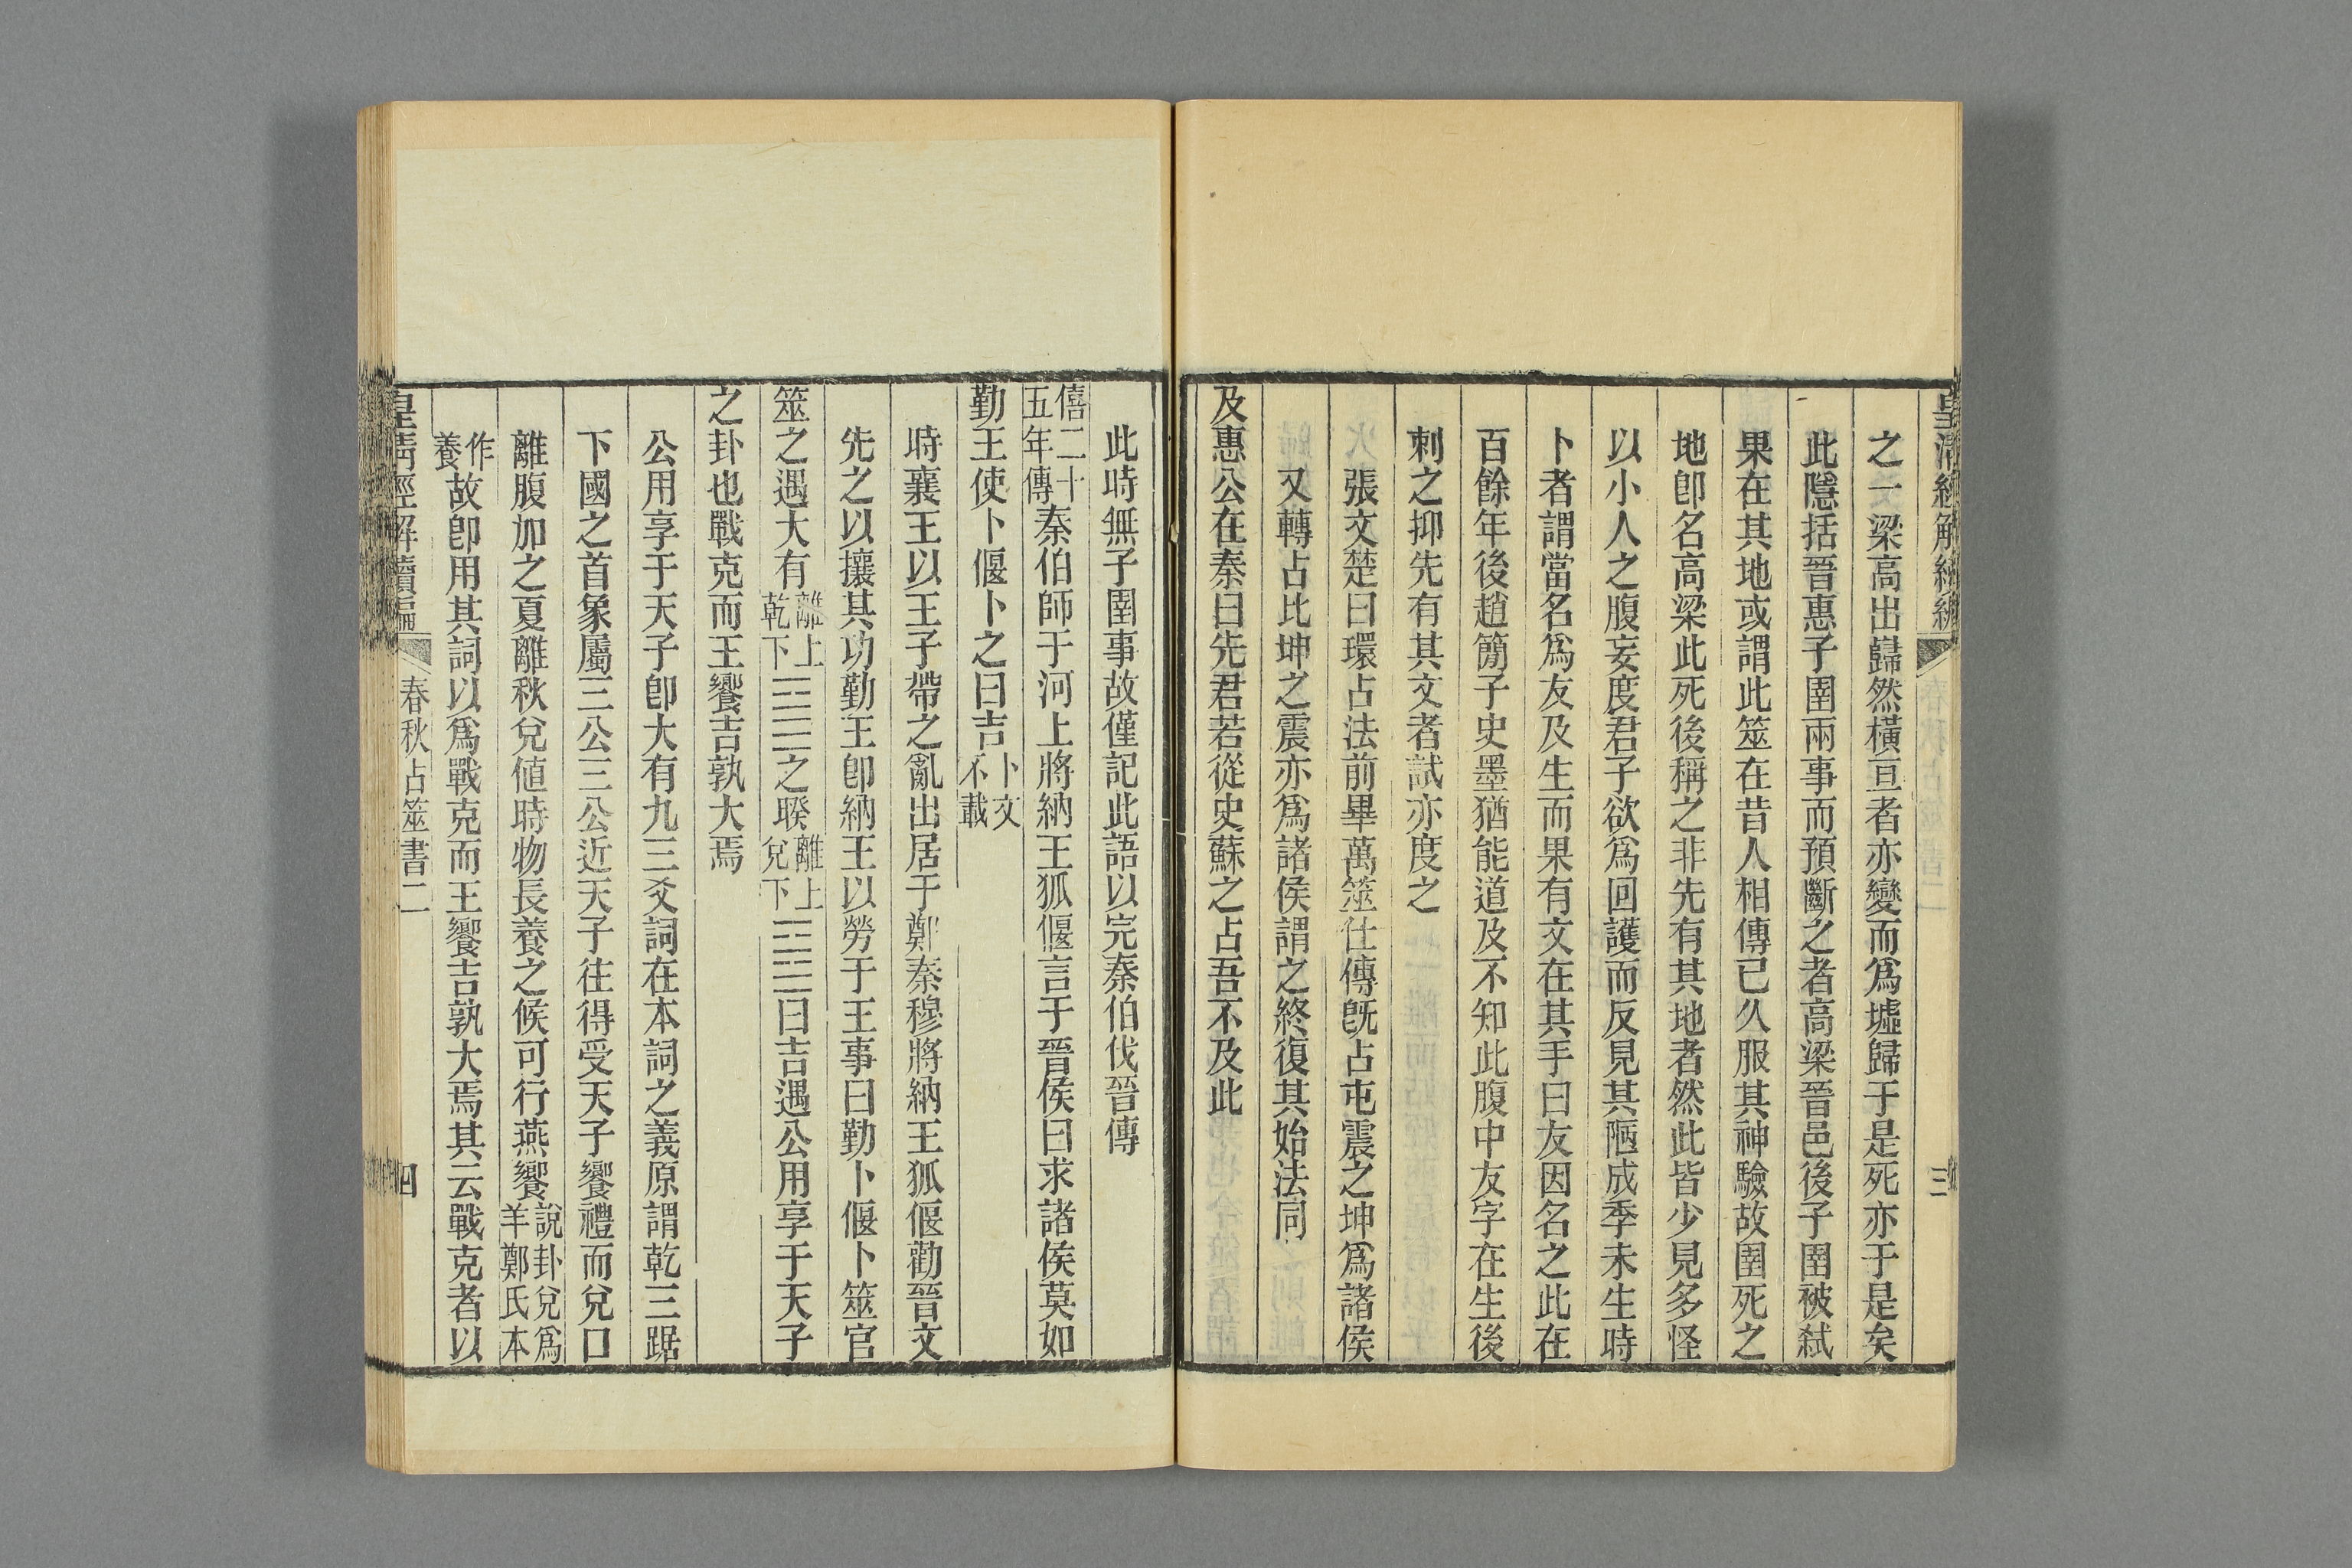 皇清經解續編
三
之一梁高出歸然橫亘者亦變而爲墟歸于是死亦于是矣
此隱括晉惠子圉兩事而預斷之者高梁晉邑後子圉被弒
果在其地或謂此筮在昔人相傳已久服其神驗故圉死之
地卽名高梁此死後稱之非先有其地者然此皆少見多怪
以小人之腹妄度君子欲爲回護而反見其陋成季未生時
卜者謂當名爲友及生而果有文在其手曰友因名之此在
百餘年後趙簡子史墨猶能道及不知此腹中友字在生後
刺之抑先有其文者試亦度之
張文楚曰環占法前畢萬筮仕傳旣占屯震之坤爲諸侯
又轉占比坤之震亦爲諸侯謂之終復其始法同
及惠公在秦曰先君若從史蘇之占吾不及此
此時無子圉事故僅記此語以完秦伯伐晉傳
僖二十五年傳秦伯師于河上將納王狐偃言于晉侯曰求諸侯莫如
勤王使卜偃卜之曰吉卜文不載
時襄王以王子帶之亂出居于鄭秦穆將納王狐偃勸晉文
先之以攘其功勤王卽納王以勞于王事曰勤卜偃卜筮官
筮之遇大有離上乾下☲☰之睽離上兌下☲☱曰吉遇公用享于天子
之卦也戰克而王饗吉孰大焉
公用享于天子卽大有九三爻詞在本詞之義原謂乾三踞
下國之首象屬三公三公近天子往得受天子饗禮而兌口
離腹加之夏離秋兌値時物長養之候可行燕饗說卦兌爲羊鄭氏本
作養故卽用其詞以爲戰克而王饗吉孰大焉其云戰克者以
皇淸經解續編
春秋占筮書二
四